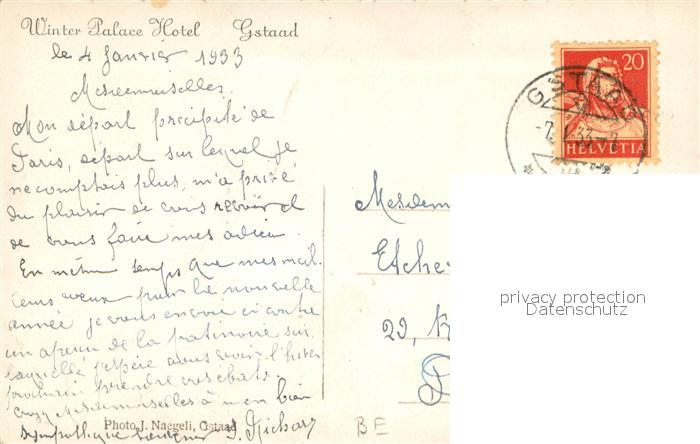 Winter Palace Hotel Gstaad
le 4 Janvier 1933
Mesdemoiselles.
Mon départ précipité de
Paris, départ sur lequel je
ne comptais plus, m'a privé
du plaisir de vous revoir et
de vous faire mes adieu.
En même temps que mes meil
leurs vœux pour la nouvelle
année je vous envoie ci contre
un aperçu de la patinoire sur
laquelle j'espère vous voir l'hiver
prochain prendre vos ébats.
Croyez Mesdemoiselles à mon bien
sympathique souvenir
Photo J. Naegeli, Gstaad
20
HELVETIA
GSTAAD
-7.I.33-
Mesdem
Etche
29,
privacy protection
Datenschutz
BE